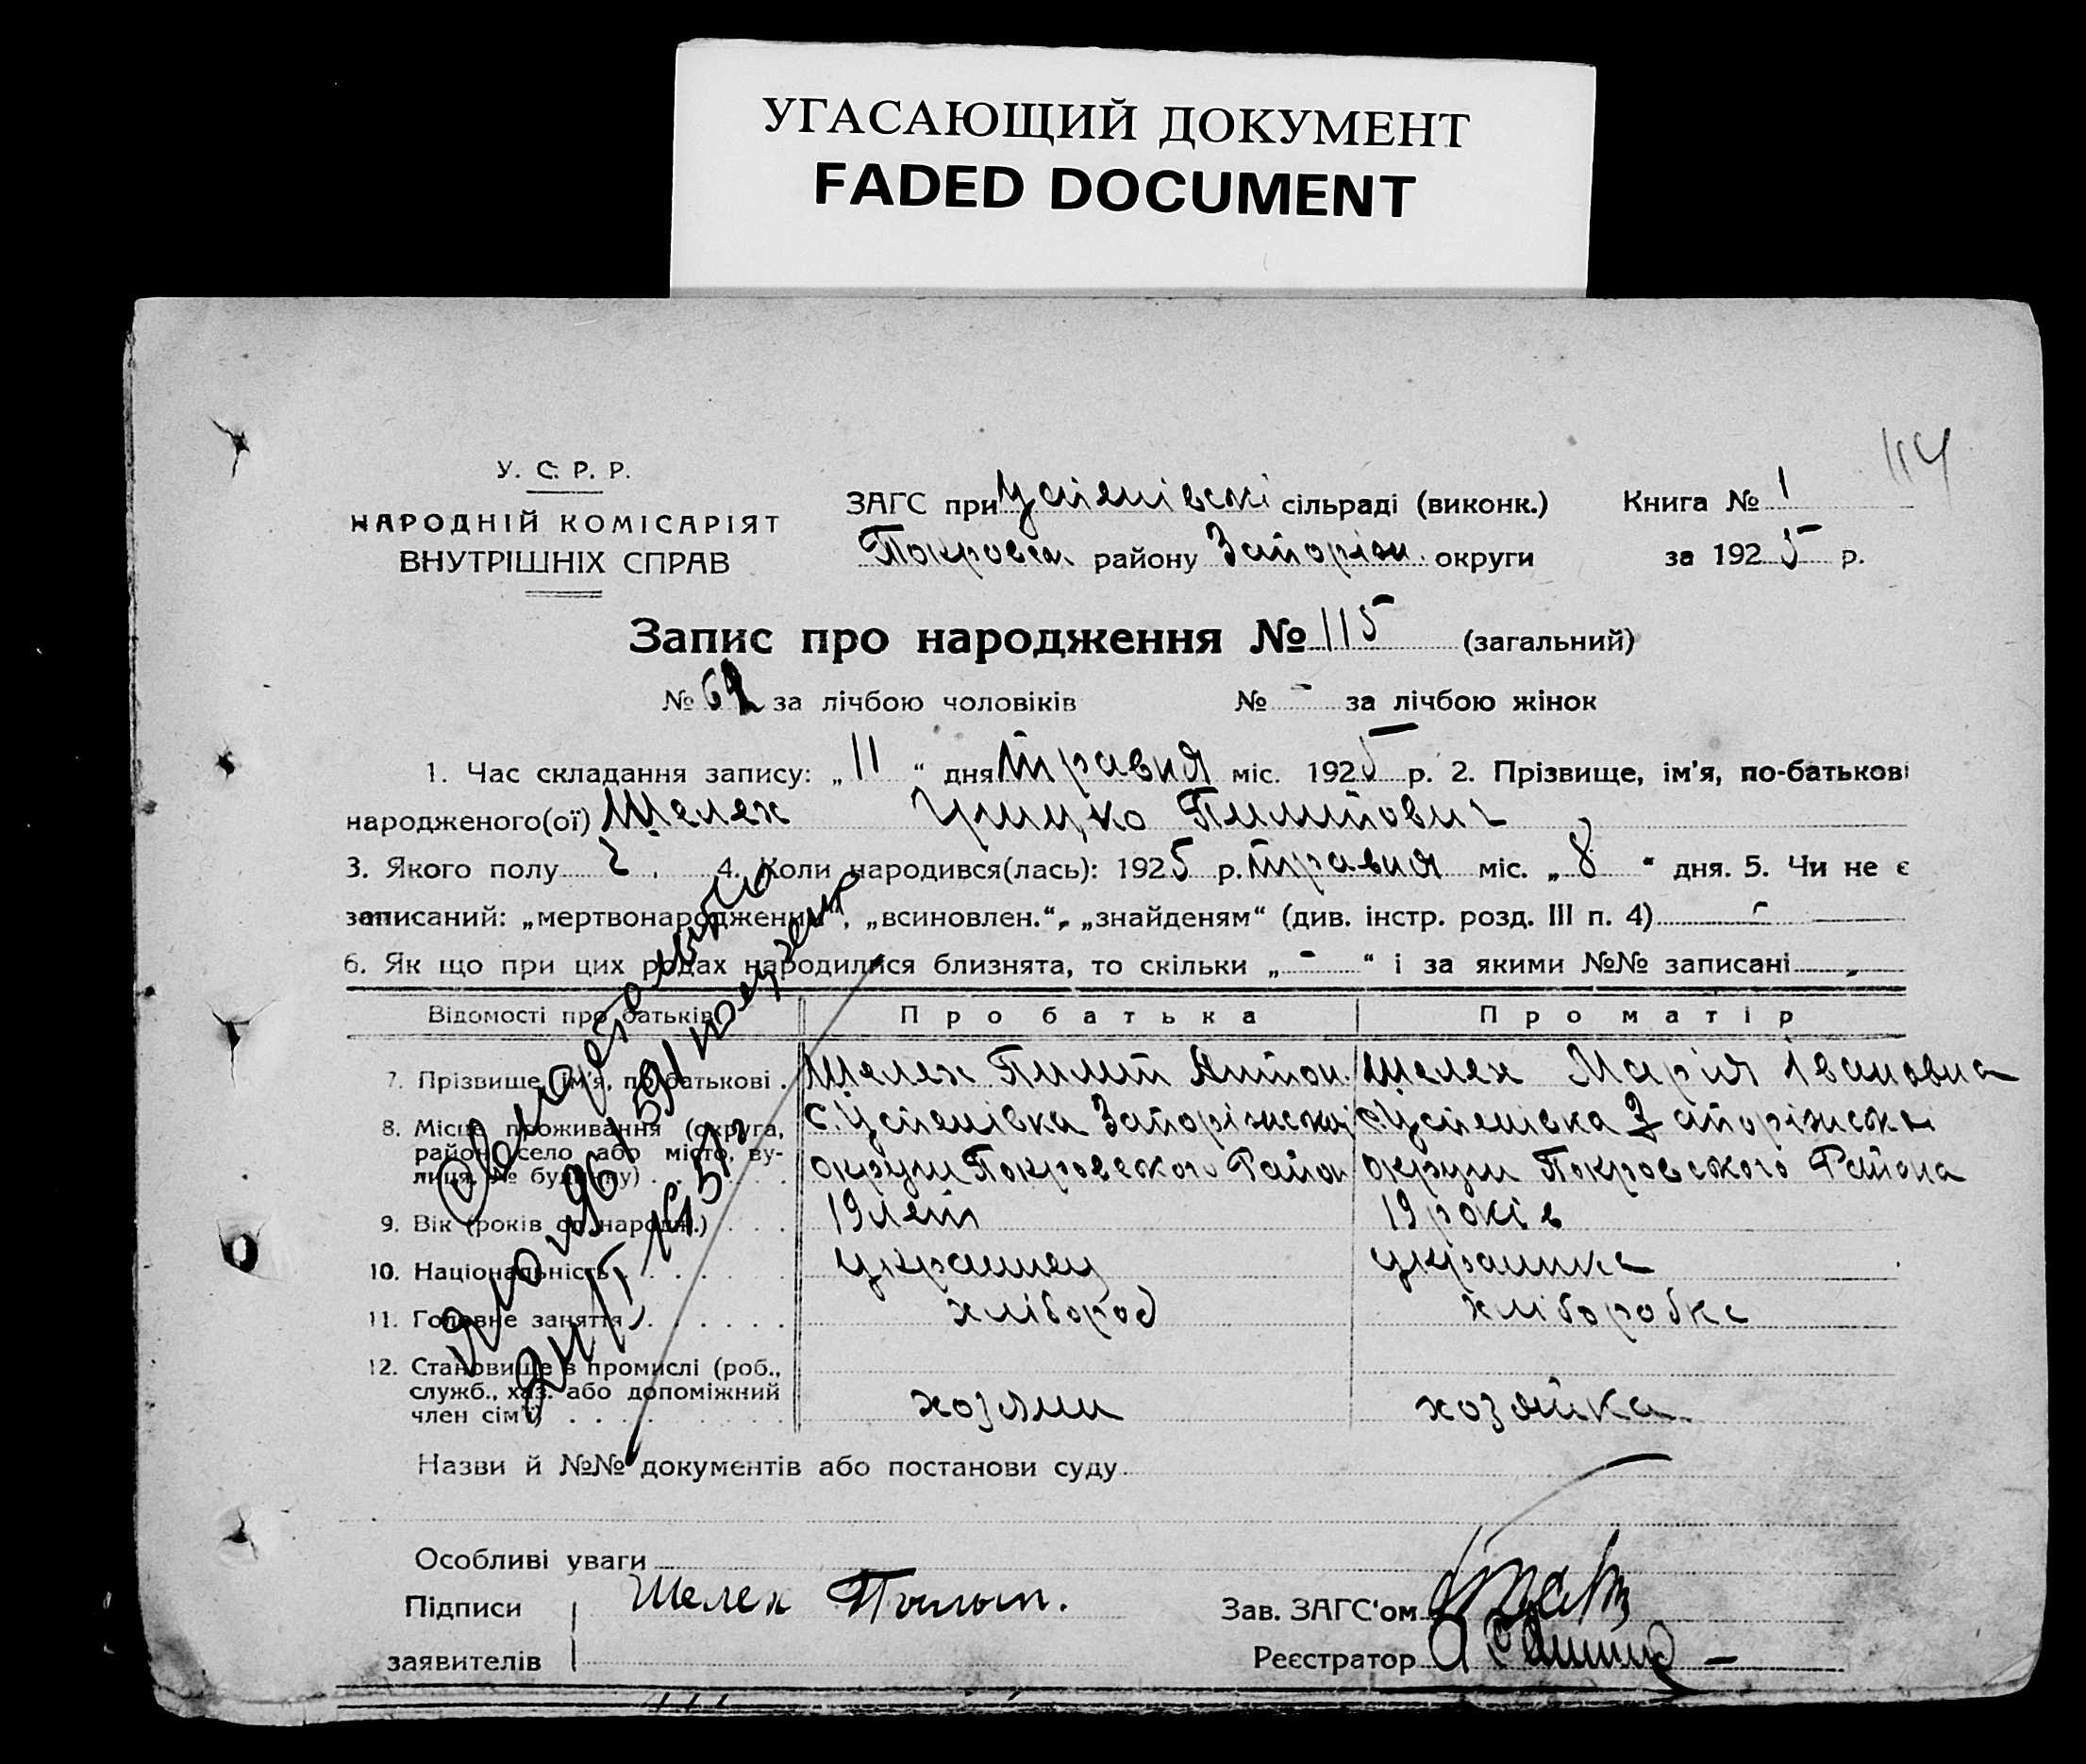 УГАСАЮЩИЙ ДОКУМЕНТ
FADED DOCUMENT
114
У. С. Р. Р.
НАРОДНІЙ КОМІСАРІЯТ
ВНУТРІШНІХ СПРАВ
ЗАГС при Успенівскі сільраді (виконк.)
Покровск району Запоріж. округи
Книга № 1
за 1925 р.
Запис про народження № 115 (загальний)
№ 62 за лічбою чоловіків № - за лічбою жінок
1. Час складання запису: „11“ дня травня міс. 1925 р. 2. Прізвище, ім'я, по-батькові
народженого(ої) Шелех Грицко Пилипович
3. Якого полу ч. 4. Коли народився(лась): 1925 р. травня міс. „8“ дня. 5. Чи не є
записаний: „мертвонароджений“, „всиновлен.“, „знайденям“ (див. інстр. розд. III п. 4) -
6. Як що при цих родах народилися близнята, то скільки „-“ і за якими №№ записані
Відомості про батьків Про батька Про матір
7. Прізвище, ім'я, по-батькові . Шелех Пилип Антон. Шелех Марія Івановна
8. Місце проживання (округа, с. Успенівка Запоріжскої с. Успенівка Запоріжскі
район, село або місто, вулиця, № будинку) . . . округи Покровского Район округи Покровского Района
9. Вік (років од народж.) . . . 19 лет 19 років
10. Національність . . . . . украинец украинка
11. Головне заняття . . . . . хлібород хлібороб​ка
12. Становище в промислі (роб.,
служб., хаз. або допоміжний хозяин хозяйка
член сім'ї) . . . . .
Назви й №№ документів або постанови суду
Особливі уваги
Підписи Шелех Пылып. Зав. ЗАГС'ом
заявителів Реєстратор